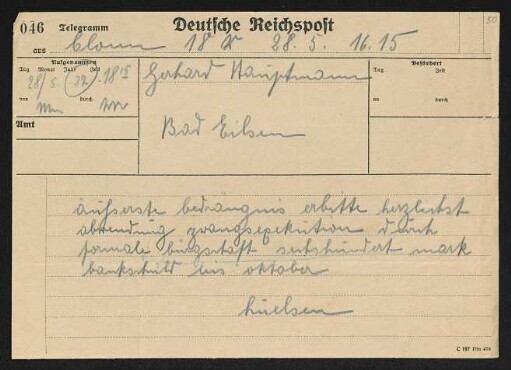 046 Telegramm Deutsche Reichspost 50
aus 18 28. 5. 16.15
Aufgenommen
Tag Monat Jahr Zeit
28/ 5. (32) 18 15
von durch
Amt
Gerhard Hauptmann
Bad Eilsen
Befördert
Tag Zeit
an durch
äusserste bedrängnis erbitte herzlichst
abwendung zwangsexekution durch
formale bürgschaft sechshundert mark
bankschuld bis oktober
huelsen
C 187 Din 476